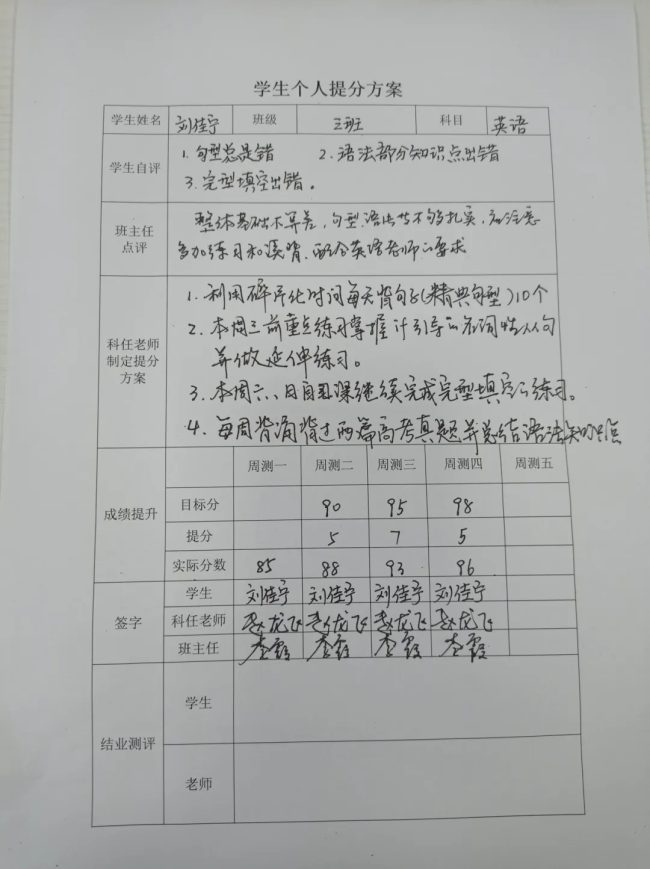 学生个人提分方案
学生姓名 刘佳宁 班级 三班 科目 英语
学生自评
1. 句型总是错 2. 语法部分知识点出错
3. 完型填空出错。
班主任
点评
整体基础不算差,句型,语法不够扎实,应注意
多加练习和误背,配合英语老师的要求
科任老师
制定提分
方案
1. 利用碎片化时间每天背句子(精典句型)10个
2. 本周三前重点练习掌握it引导的名词性从句
并做延伸练习。
3. 本周六、日自习课继续完成完型填空的练习。
4. 每周背诵背过两篇高考真题并总结语法知识点
成绩提升
周测一 周测二 周测三 周测四 周测五
目标分 90 95 98
提分 5 7 5
实际分数 85 88 93 96
签字
学生 刘佳宁 刘佳宁 刘佳宁 刘佳宁
科任老师 赵龙飞 赵龙飞 赵龙飞 赵龙飞
班主任 李霞 李霞 李霞 李霞
结业测评
学生
老师